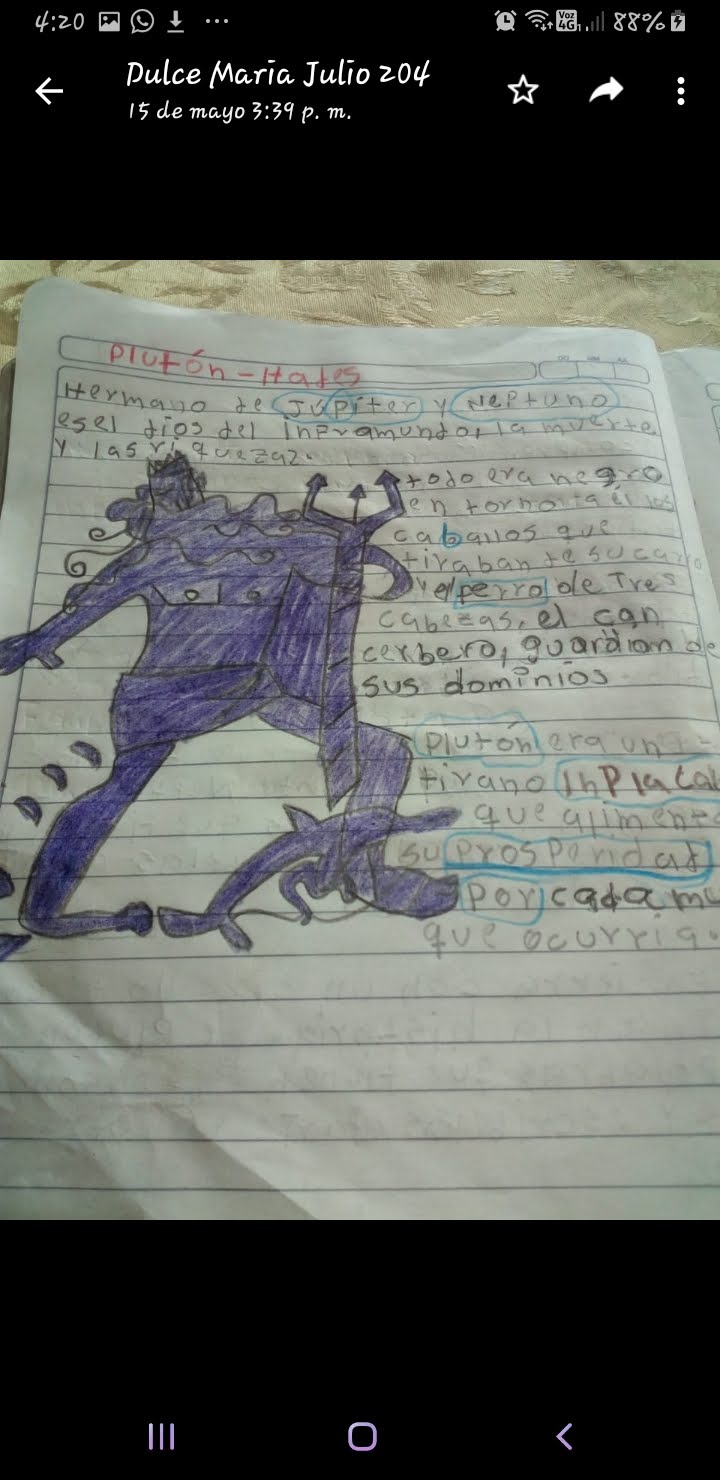 4:20 ... Voz 4G 88%
Dulce Maria Julio 204
15 de mayo 3:39 p. m.
Plutón-Hades
Hermano de Júpiter y Neptuno
es el dios del inframundo, la muerte
y las riquezaz.
todo era negro
en torno a él los
caballos que
tiraban de su carro
y el perro de Tres
cabezas, el can
cerbero, guardian de
sus dominios
Plutón era un
tirano inplacal
que alimenta
su prosperidad
por cada mu
que ocurria.